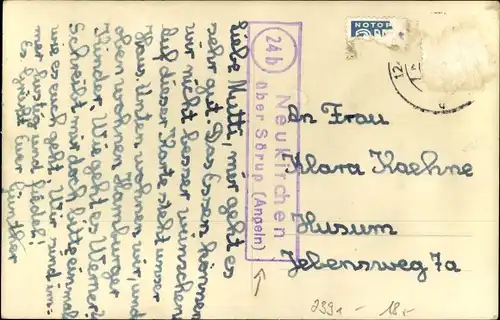 Liebe Mutti, mir geht es
sehr gut. Das Essen können
wir nicht besser wünschen
Auf dieser Karte steht unser
Haus. Unten wohnen wir und
oben wohnen Hamburger
Kinder. Wie geht es Werner?
Schreibt mir doch bitte einmal
wie es euch geht. Wir sind im=
mer lustig und fiedel!
Es grüßt Euer Günther
24b
Neukirchen
über Sörup (Angeln)
NOTOP
12
An Frau
Klara Kaehne
Husum
Jebensweg 7a
239a - 18.-